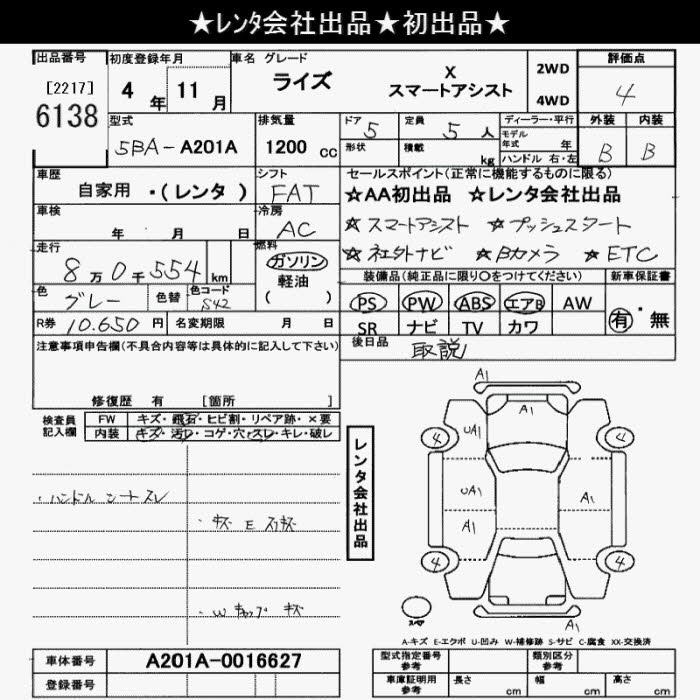 ★レンタ会社出品★初出品★
出品番号 初度登録年月 車名 グレード 評価点
[2217] 4 年 11 月 ライズ X 2WD 4
6138 スマートアシスト 4WD
型式 排気量 ドア 5 定員 5 人 ディーラー・平行 外装 内装
5BA-A201A 1200 cc 形状 積載 kg モデル年式 年 B B
ハンドル 右・左
車歴 シフト セールスポイント(正常に機能するものに限る)
自家用 ・(レンタ ) FAT ☆AA初出品 ☆レンタ会社出品
車検 冷房 ☆スマートアシスト ☆プッシュスタート
年 月 日 AC ☆社外ナビ ☆Bカメラ ☆ETC
走行 燃料
8万0千554 km ガソリン 装備品(純正品に限り○をつけてください) 新車保証書
色 色替 色コード 軽油 PS PW ABS エアB AW 有・無
グレー S42 ( ) SR ナビ TV カワ
R券 10.650 円 名変期限 月 日 後日品 取説
注意事項申告欄(不具合内容等は具体的に記入して下さい)
修復歴 有 [箇所 ]
検査員記入欄 FW キズ・飛石・ヒビ割・リペア跡・×要
内装 キズ・汚レ・コゲ・穴・スレ・キレ・破レ
レンタ会社出品
・ハンドル シートスレ
・キズ E スリキズ
・W キャップ キズ
A1
A1
4 UA1 4
UA1 A1
A1
4 4
スペア A1
A-キズ E-エクボ U-凹み W-補修跡 S-サビ C-腐食 XX-交換済
車体番号 A201A-0016627 型式指定番号 参考 類別区分 参考
登録番号 車庫証明用 参考 長さ cm 幅 cm 高さ cm